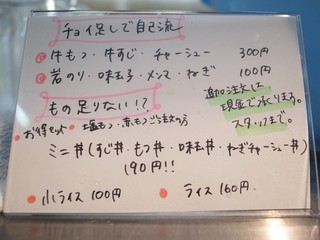 チョイ足しで自己流
牛もつ・牛すじ・チャーシュー 300円
岩のり・味玉子・メンマ・ねぎ 100円
追加注文は
現金で承ります。
スタッフまで。
もの足りない!?
お得セット・塩もつ・赤もつご注文の方
ミニ丼(すじ丼・もつ丼・味玉丼・ねぎチャーシュー丼)
190円!!
小ライス 100円 ライス 160円